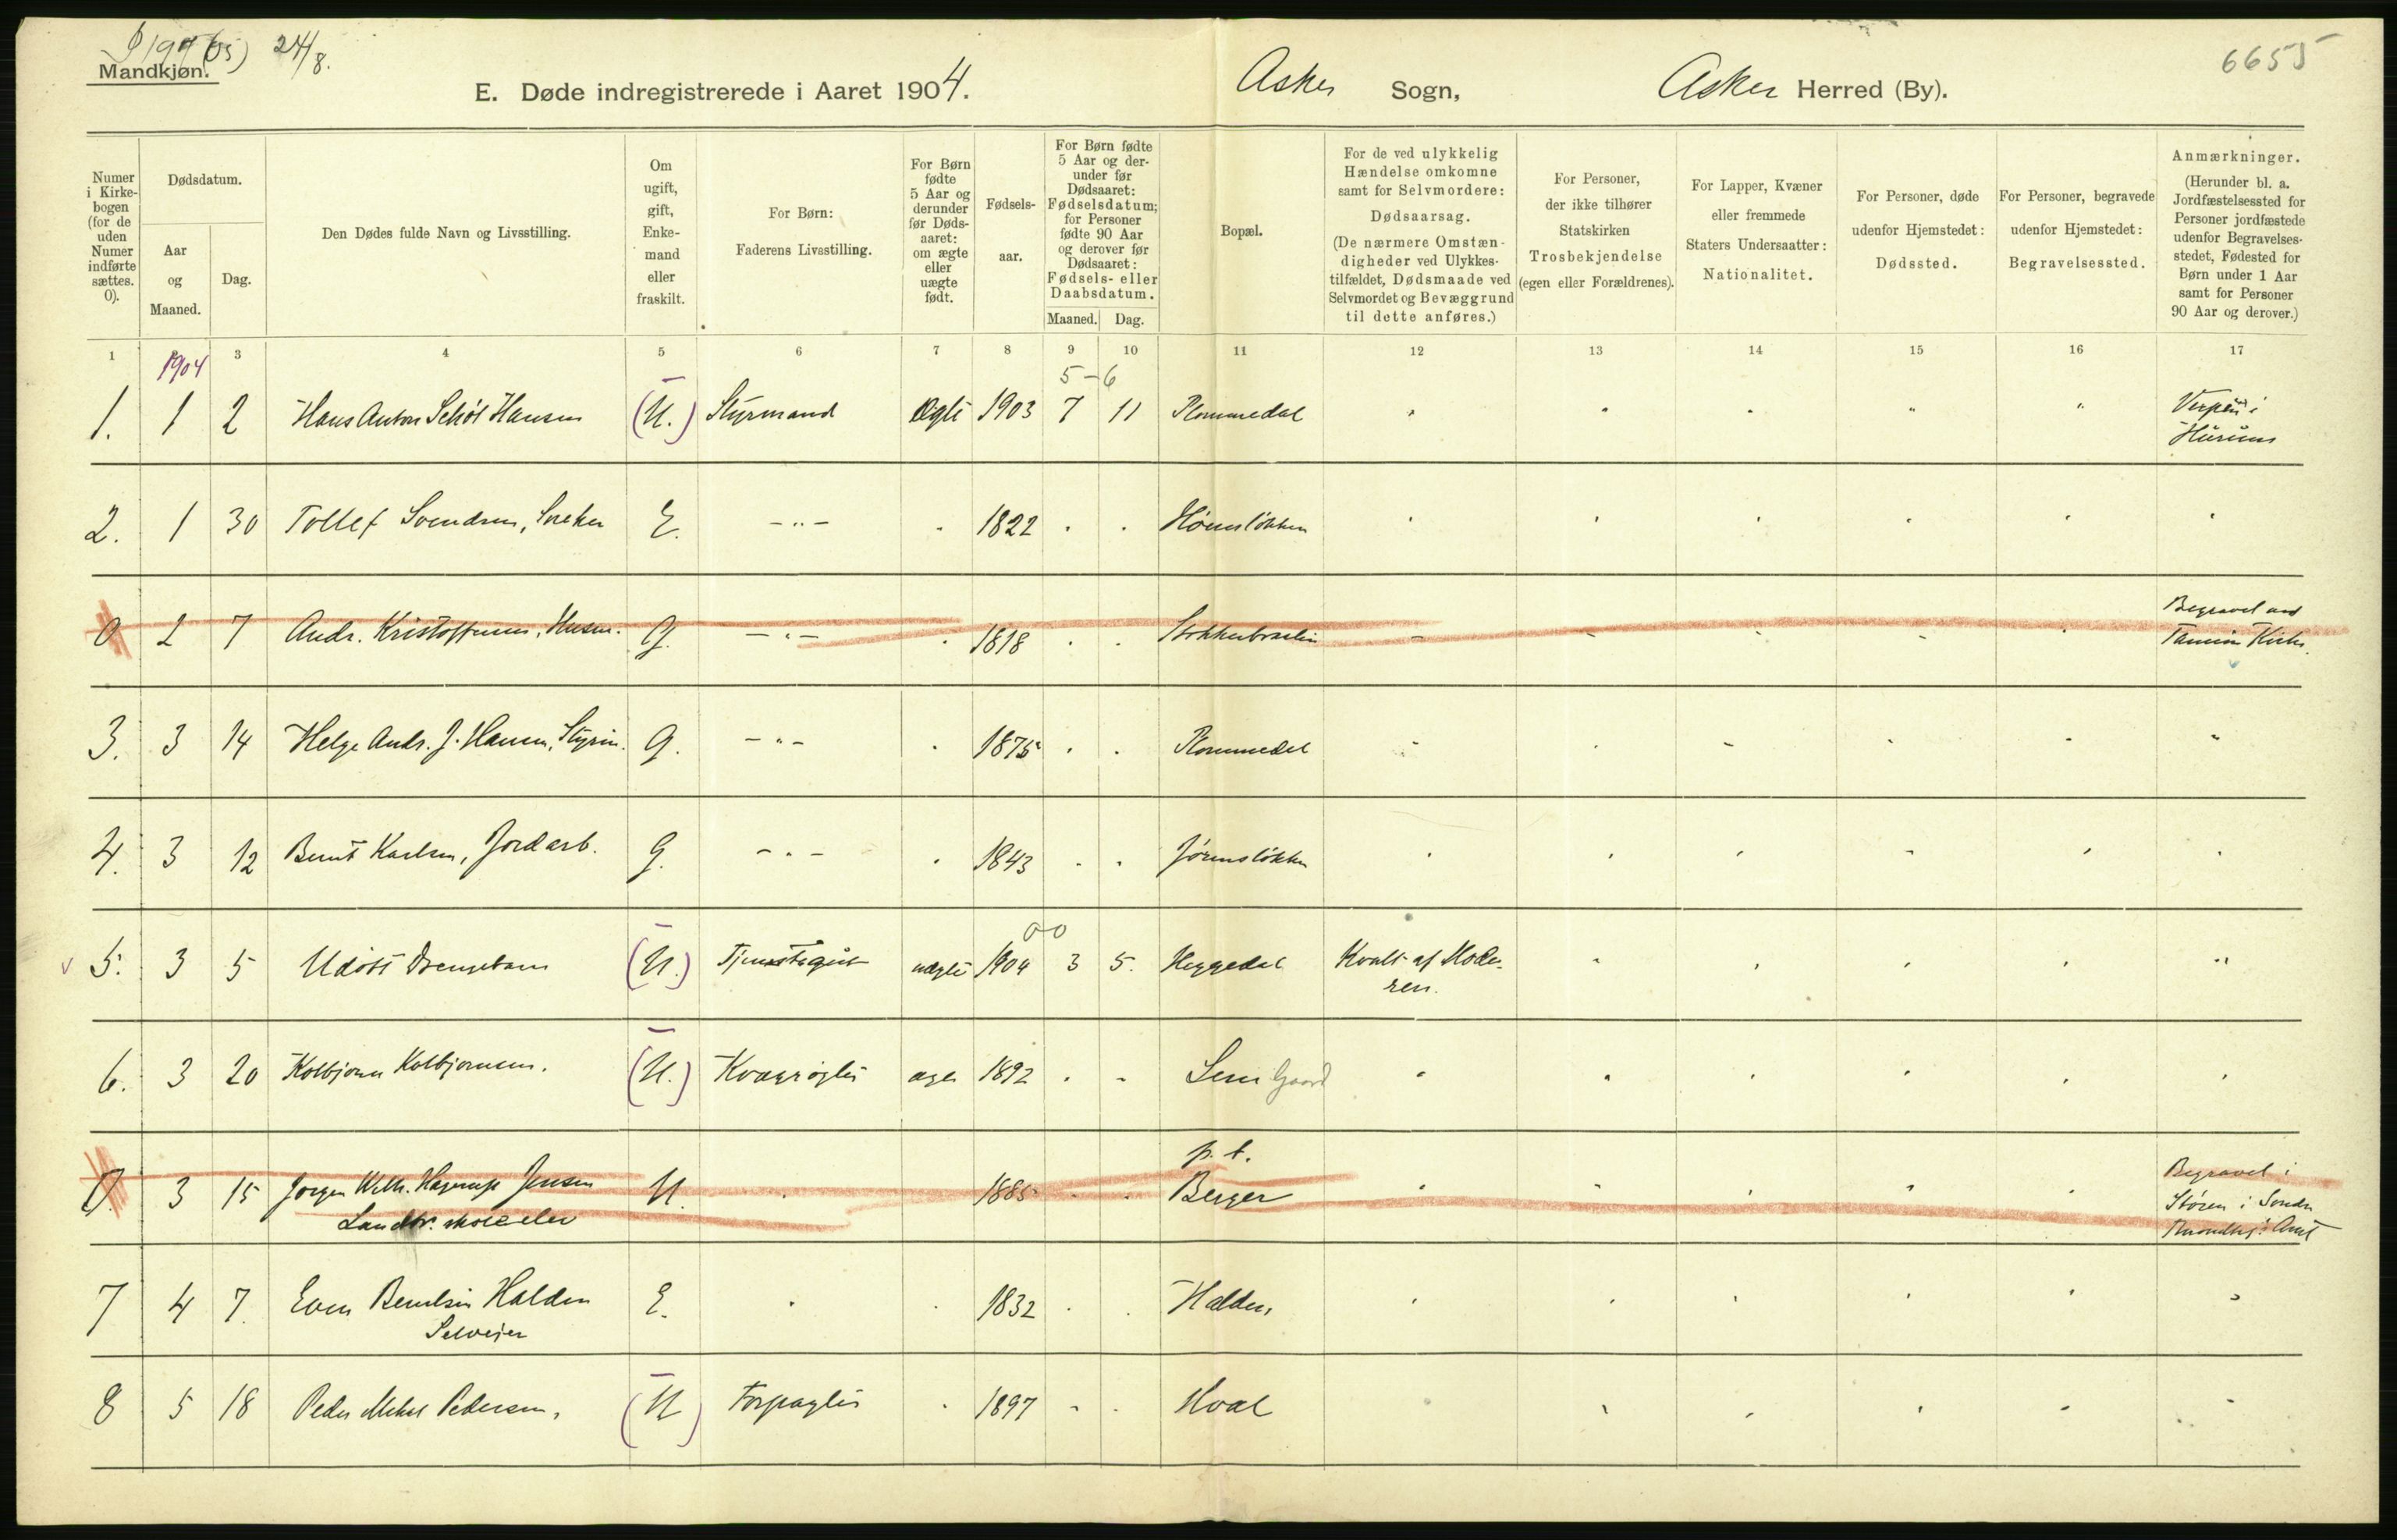 24/8.
6655
Mandkjøn.
E. Døde indregistrerede i Aaret 1904. Asker Sogn, Asker Herred (By).
Numer i Kirke-bogen (for de uden Numer indførte sættes. 0).
Dødsdatum.
Aar og Maaned.
Dag.
Den Dødes fulde Navn og Livsstilling.
Om ugift, gift, Enke-mand eller fraskilt.
For Børn: Faderens Livsstilling.
For Børn fødte 5 Aar og derunder før Døds-aaret: om ægte eller uægte født.
Fødsels-aar.
For Børn fødte 5 Aar og der-under før Dødsaaret: Fødselsdatum; for Personer fødte 90 Aar og derover før Dødsaaret: Fødsels- eller Daabsdatum.
Maaned. Dag.
Bopæl.
For de ved ulykkelig Hændelse omkomne samt for Selvmordere: Dødsaarsag. (De nærmere Omstæn-digheder ved Ulykkes-tilfældet, Dødsmaade ved Selvmordet og Bevæggrund til dette anføres.)
For Personer, der ikke tilhører Statskirken Trosbekjendelse (egen eller Forældrenes).
For Lapper, Kvæner eller fremmede Staters Undersaatter: Nationalitet.
For Personer, døde udenfor Hjemstedet: Dødssted.
For Personer, begravede udenfor Hjemstedet: Begravelsessted.
Anmærkninger. (Herunder bl. a. Jordfæstelsessted for Personer jordfæstede udenfor Begravelses-stedet, Fødested for Børn under 1 Aar samt for Personer 90 Aar og derover.)
1 3 4 5 6 7 8 9 10 11 12 13 14 15 16 17
1904
5-6
1. 1 2 Hans Anton Schøt Hansen (U.) Styrmand Ægte 1903 7 11 Rommedal " " " " " Verpen i
Hurum
2. 1 30 Tollef Svendsen, Sneker E. - " - " 1822 " " Hønsløkken " " " " " "
0 2 7 Andr. Kristoffersen, Husm. G. - " - " 1818 " " " " " " " Begravet ved
Tanum Kirke.
3. 3 14 Helge Andr. J. Hansen, Styrm. G. - " - " 1875 " " Rommedal " " " " " "
4. 3 12 Bernt Karlsen, Jordarb. G. - " - " 1843 " " Jørnsløkken " " " " " "
00
5. 3 5 Udøbt Drengebarn (U.) Tjenestegut uægte 1904 3 5. Heggedal Kvalt af Mode-
ren.
6. 3 20 Kolbjørn Kolbjørnsen. (U.) Kvægrøgter ægte 1892 " " Sem Gaard " " " " " "
p. t.
0. 3 15 Jørgen Wilh. Hagerup Jensen U. " 1885 " " Berger " " " " " Begravet i
Landbr. skoleelev Støren i Søndre
Trondhj. Amt
7 4 7. Even Berntsen Halden E. " " 1832 " " Halden " " " " " "
Selveier
8 5 18 Peder Mikal Pedersen, (U) Forpagter " 1897 " " Hval " " " " " "